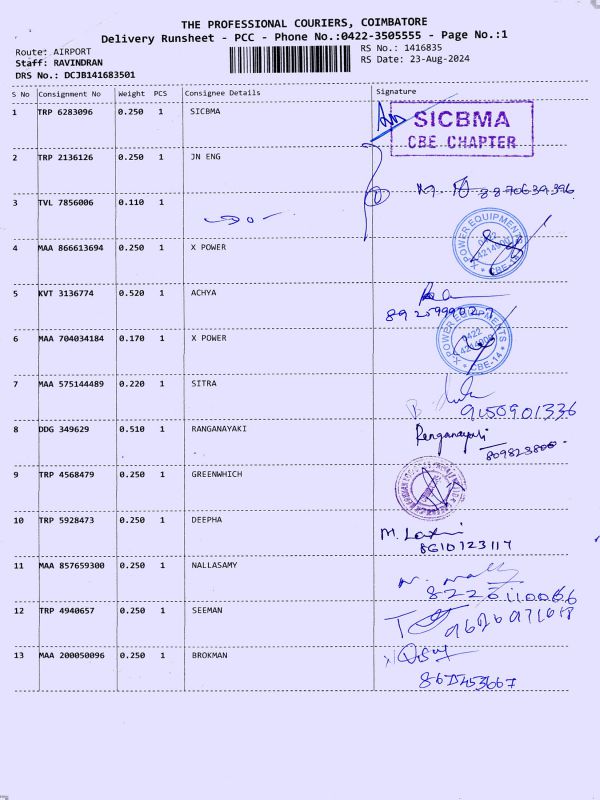 THE PROFESSIONAL COURIERS, COIMBATORE
Delivery Runsheet - PCC - Phone No.:0422-3505555 - Page No.:1
Route: AIRPORT
Staff: RAVINDRAN
DRS No.: DCJB141683501
RS No.: 1416835
RS Date: 23-Aug-2024
S No Consignment No Weight PCS Consignee Details Signature
1 TRP 6283096 0.250 1 SICBMA
SICBMA
CBE CHAPTER
2 TRP 2136126 0.250 1 JN ENG
8870634396
3 TVL 7856006 0.110 1
-Do-
4 MAA 866613694 0.250 1 X POWER
X POWER EQUIPMENTS
0422
CBE-14
5 KVT 3136774 0.520 1 ACHYA
6 MAA 704034184 0.170 1 X POWER
X POWER EQUIPMENTS
0422
CBE-14
7 MAA 575144489 0.220 1 SITRA
9150901336
8 DDG 349629 0.510 1 RANGANAYAKI
Renganayaki
9 TRP 4568479 0.250 1 GREENWHICH
10 TRP 5928473 0.250 1 DEEPHA
M. Laxmi
8610723117
11 MAA 857659300 0.250 1 NALLASAMY
12 TRP 4940657 0.250 1 SEEMAN
13 MAA 200050096 0.250 1 BROKMAN